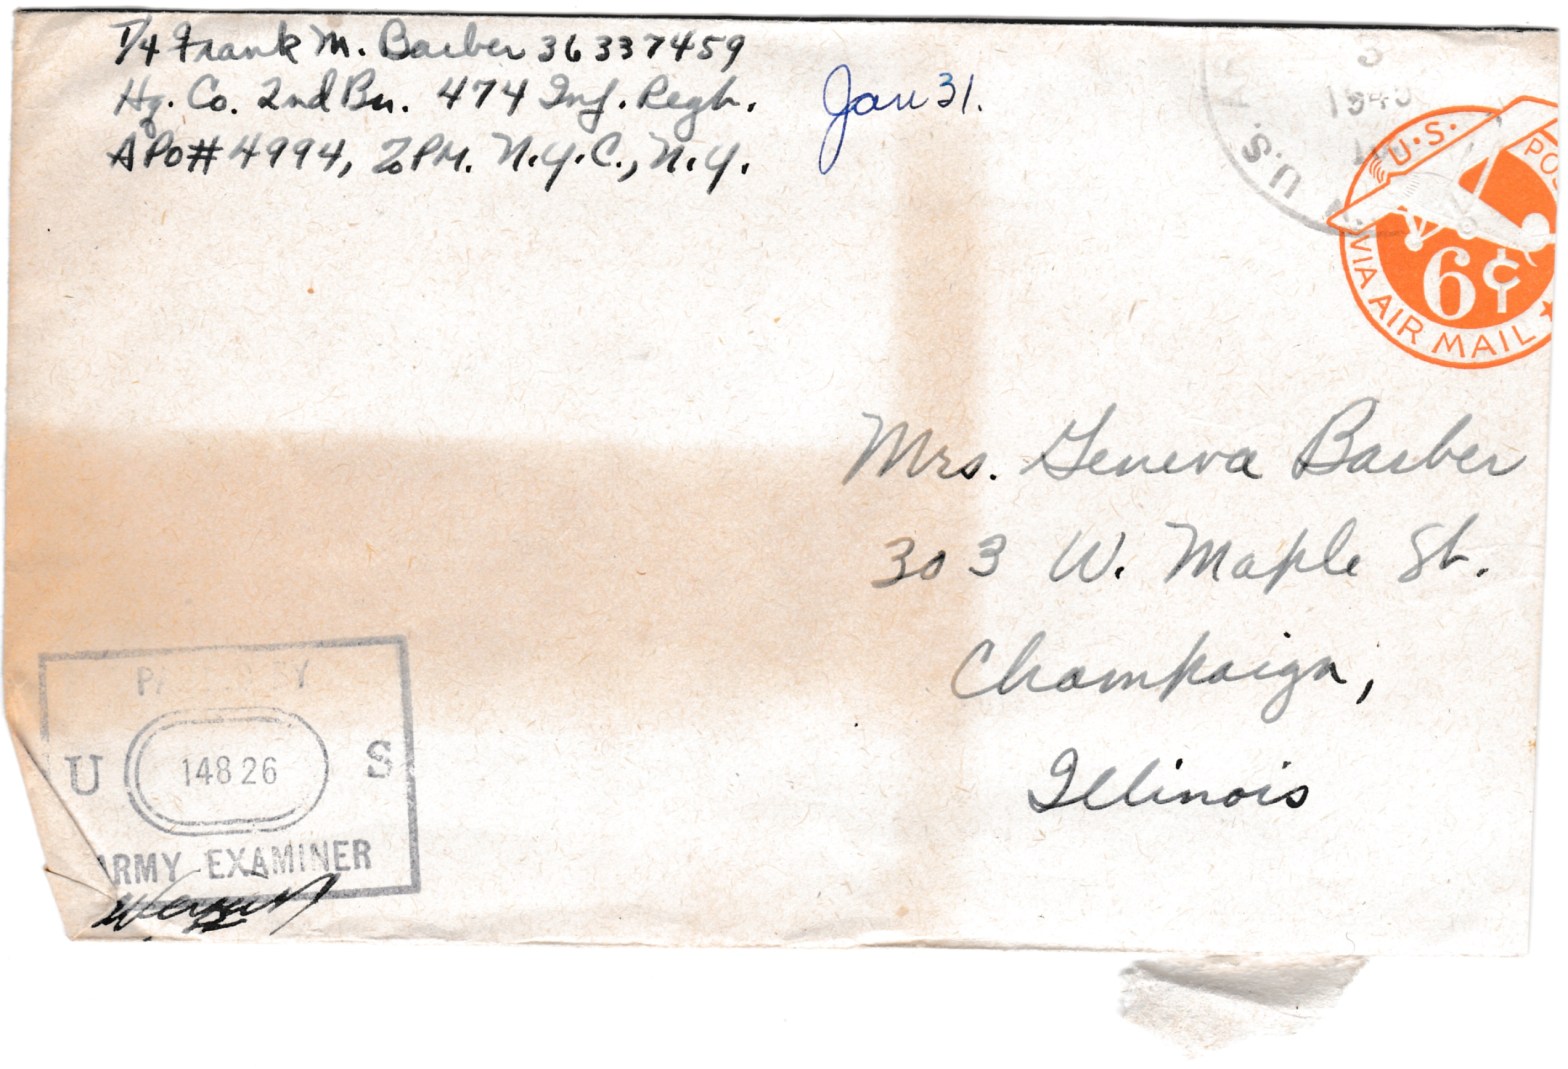 T/4 Frank M. Barber 36337459
Hq. Co. 2nd Bn. 474 Inf. Regt.
APO# 4994, % PM. N.Y.C., N.Y.
Jan 31.
1945
U.S.
U.S. POS
6¢
VIA AIR MAIL
Mrs. Geneva Barber
303 W. Maple St.
Champaign,
Illinois
U 14826 S
ARMY EXAMINER